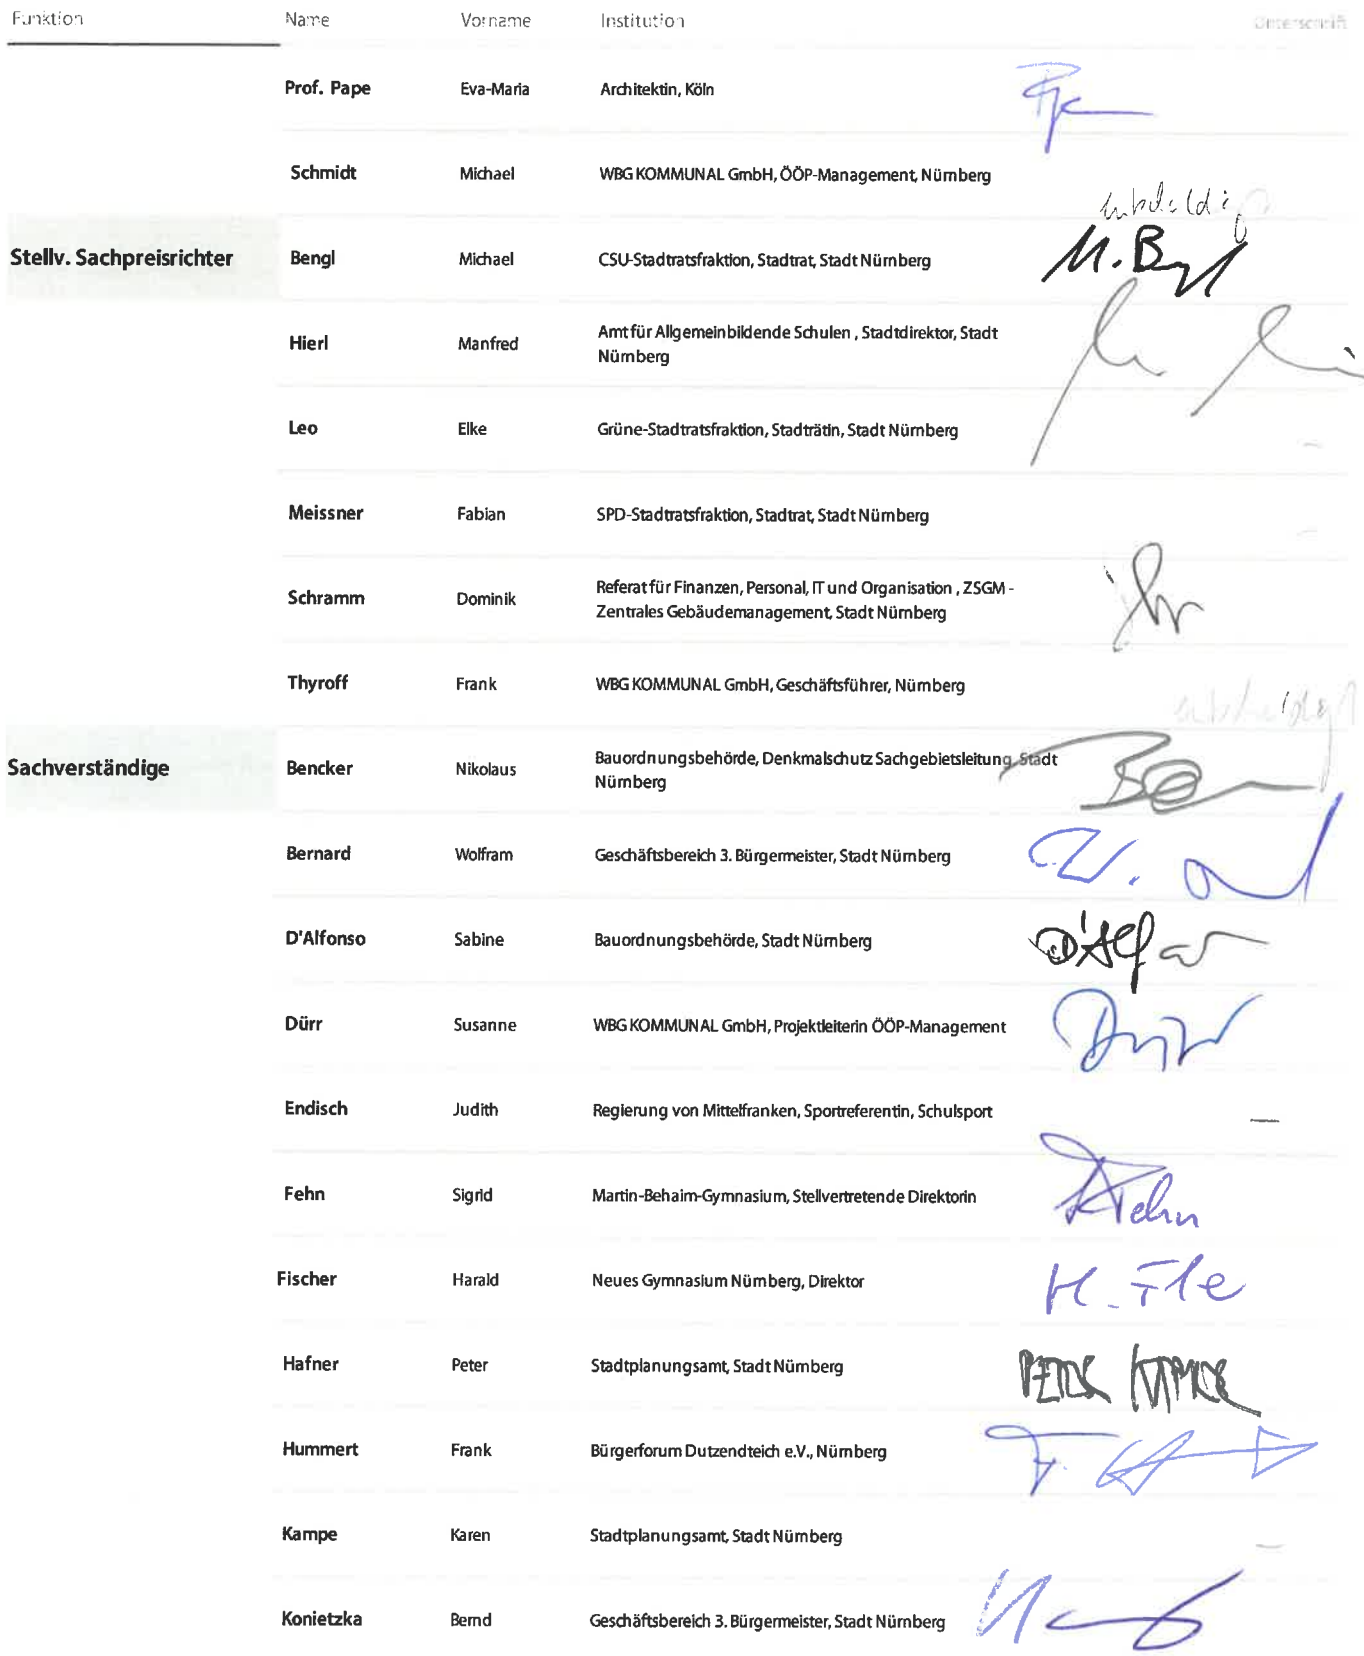 Funktion Name Vorname Institution Unterschrift
Prof. Pape Eva-Maria Architektin, Köln
Schmidt Michael WBG KOMMUNAL GmbH, ÖÖP-Management, Nürnberg
entschuldigt
Stellv. Sachpreisrichter Bengl Michael CSU-Stadtratsfraktion, Stadtrat, Stadt Nürnberg M. B
Hierl Manfred Amt für Allgemeinbildende Schulen , Stadtdirektor, Stadt
Nürnberg
Leo Elke Grüne-Stadtratsfraktion, Stadträtin, Stadt Nürnberg –
Meissner Fabian SPD-Stadtratsfraktion, Stadtrat, Stadt Nürnberg –
Schramm Dominik Referat für Finanzen, Personal, IT und Organisation , ZSGM -
Zentrales Gebäudemanagement, Stadt Nürnberg
Thyroff Frank WBG KOMMUNAL GmbH, Geschäftsführer, Nürnberg entschuldigt
Sachverständige Bencker Nikolaus Bauordnungsbehörde, Denkmalschutz Sachgebietsleitung, Stadt
Nürnberg
Bernard Wolfram Geschäftsbereich 3. Bürgermeister, Stadt Nürnberg
D'Alfonso Sabine Bauordnungsbehörde, Stadt Nürnberg
Dürr Susanne WBG KOMMUNAL GmbH, Projektleiterin ÖÖP-Management
Endisch Judith Regierung von Mittelfranken, Sportreferentin, Schulsport –
Fehn Sigrid Martin-Behaim-Gymnasium, Stellvertretende Direktorin Fehn
Fischer Harald Neues Gymnasium Nürnberg, Direktor
Hafner Peter Stadtplanungsamt, Stadt Nürnberg
Hummert Frank Bürgerforum Dutzendteich e.V., Nürnberg
Kampe Karen Stadtplanungsamt, Stadt Nürnberg –
Konietzka Bernd Geschäftsbereich 3. Bürgermeister, Stadt Nürnberg